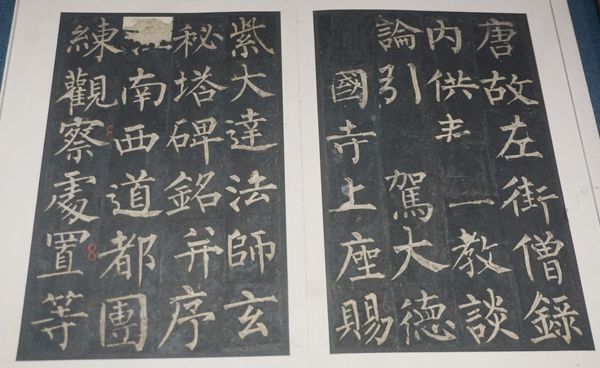 唐故左街僧錄
內供奉一教談
論引 駕大德
國寺上座賜
紫大達法師玄
秘塔碑銘并序
南西道都團
練觀察處置等
8
8